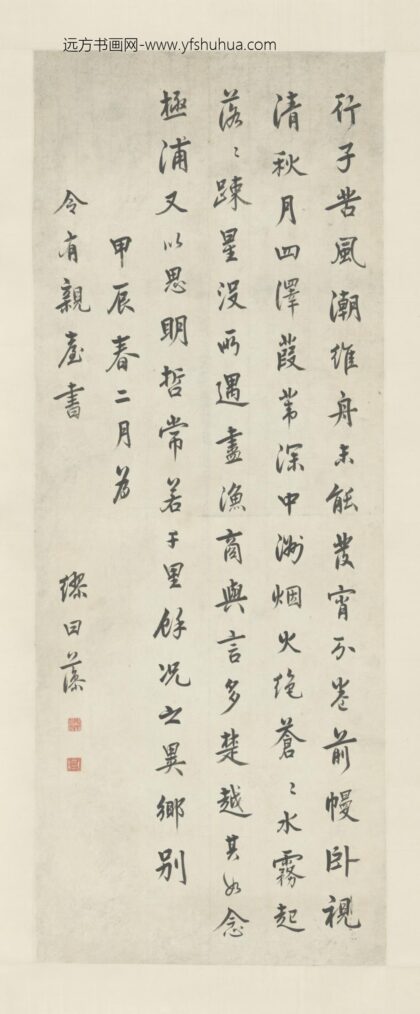 远方书画网-www.yfshuhua.com
行子苦風潮維舟未能發宵分卷前幔卧視
清秋月四澤葭葦深中洲烟火绝蒼〻水霧起
落〻疎星没所遇盡漁商與言多楚越其如念
極浦又以思明哲常若千里餘况之異鄉别
甲辰春二月為
令有親臺書
繆曰藻